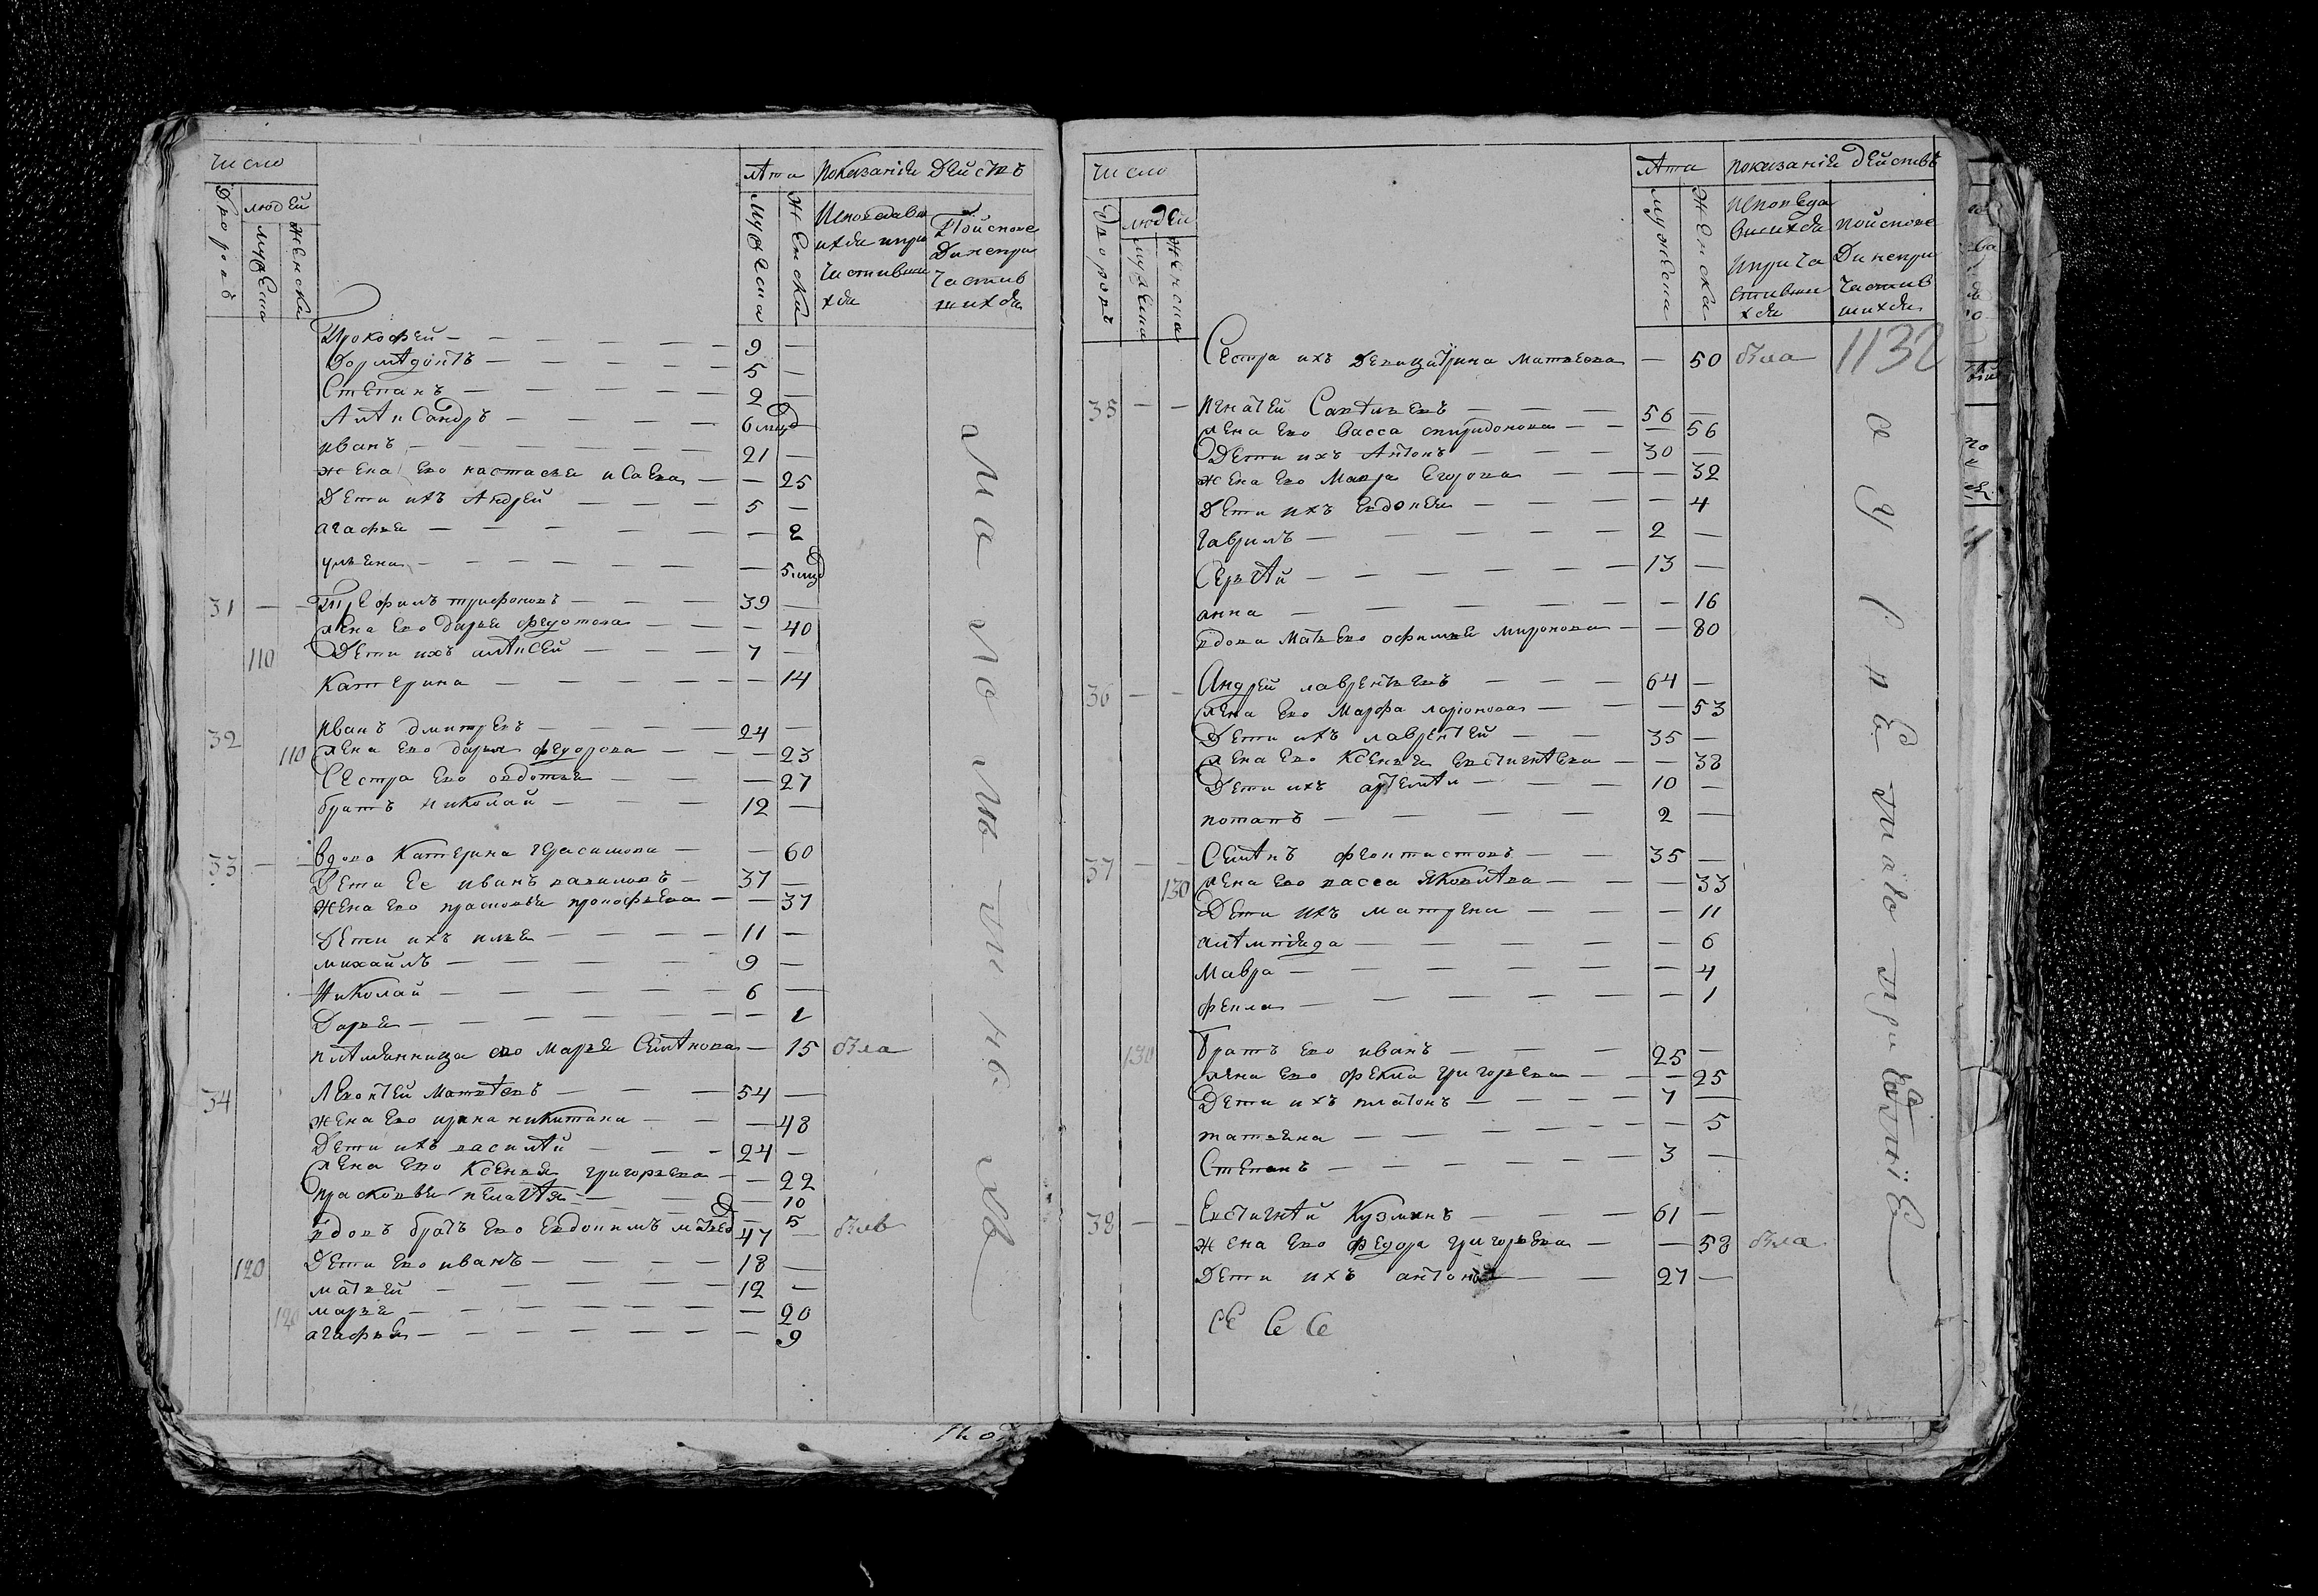 число
Дворовъ
людей
мужеска
женска
лѣта
мужеска
женска
показаніе действъ
Исповедав
ихся и при
частивши
хся
Поисповe
ди непри
частив
шихся
Прокофей — 9 —
Дормѣдонтъ — 5 —
Степанъ — 2 —
Алѣксандръ — 6
иванъ — 21 —
жена ево настасья исаева — — 25
Дети ихъ Андрей — 5 —
агафья — — 2
ульяна — — 5
31 — — Трефилъ трифоновъ — 39 —
жена ево дарья федотова — — 40
110 Дети ихъ алѣксей — 7 —
Катерина — — 14
32 иванъ дмитревъ — 24 —
110 жена ево дарья федорова — — 23
Сестра ево овдотья — — 27
братъ николай — 12 —
33 — — вдова Катерина герасимова — — 60
Дети ее иванъ вавиловъ — 37 —
жена ево прасковья прокофьева — — 37
Дети ихъ илья — 11 —
михайлъ — 9 —
Николай — 6 —
Дарья — — 1
плѣмянница ево Марья Семѣнова — 15 была
34 Леонтей Матвѣевъ — 54 —
жена ево ирина никитина — — 48
Дети ихъ василѣй — 24 —
жена ево Ксенья григорьева — — 22
прасковья пелагѣя — — 10
5
вдовъ братъ ево Евдокимъ матвеев 47 — былъ
120 Дети ево иванъ — 18 —
матвей — 12 —
120 марья — — 20
агафья — — 9
число
Дворовъ
людей
мужеска
женска
лѣта
мужеска
женска
показаніе действъ
исповеда
вшихся
и прича
стивши
хся
поисповe
ди непри
частив
шихся
1132
Сестра ихъ девица ирина Матвеева — 50 была
35 — — игнатей Савѣльевъ — 56 —
жена ево васса спиридонова — — 56
Дети ихъ Антонъ — 30 —
жена ево Мавра Егорова — — 32
Дети ихъ евдокея — — 4
гаврилъ — 2 —
Сергѣй — 13 —
анна — — 16
вдова мать ево офимья миронова — — 80
36 — — Андрей лаврентьевъ — 64 —
жена ево Марфа ларіонова — — 53
Дети ихъ лаврентей — 35 —
жена ево Ксенья евстигнѣева — — 38
Дети ихъ артемѣй — 10 —
потапъ — 2 —
37 — — Семѣнъ феоктистовъ — 35 —
130 жена ево васса яковлѣва — — 33
Дети ихъ матрена — — 11
алѣмпіяда — — 6
Мавра — — 4
фекла — — 1
130 братъ ево иванъ — 25 —
жена ево фекла григорьева — — 25
Дети ихъ платонъ — 7 —
татьяна — — 5
Степанъ — 3 —
38 — — Евстигнѣй Кузминъ — 61 —
жена ево федора григорьева — — 58 была
Дети ихъ антонъ — 27 —
се се се